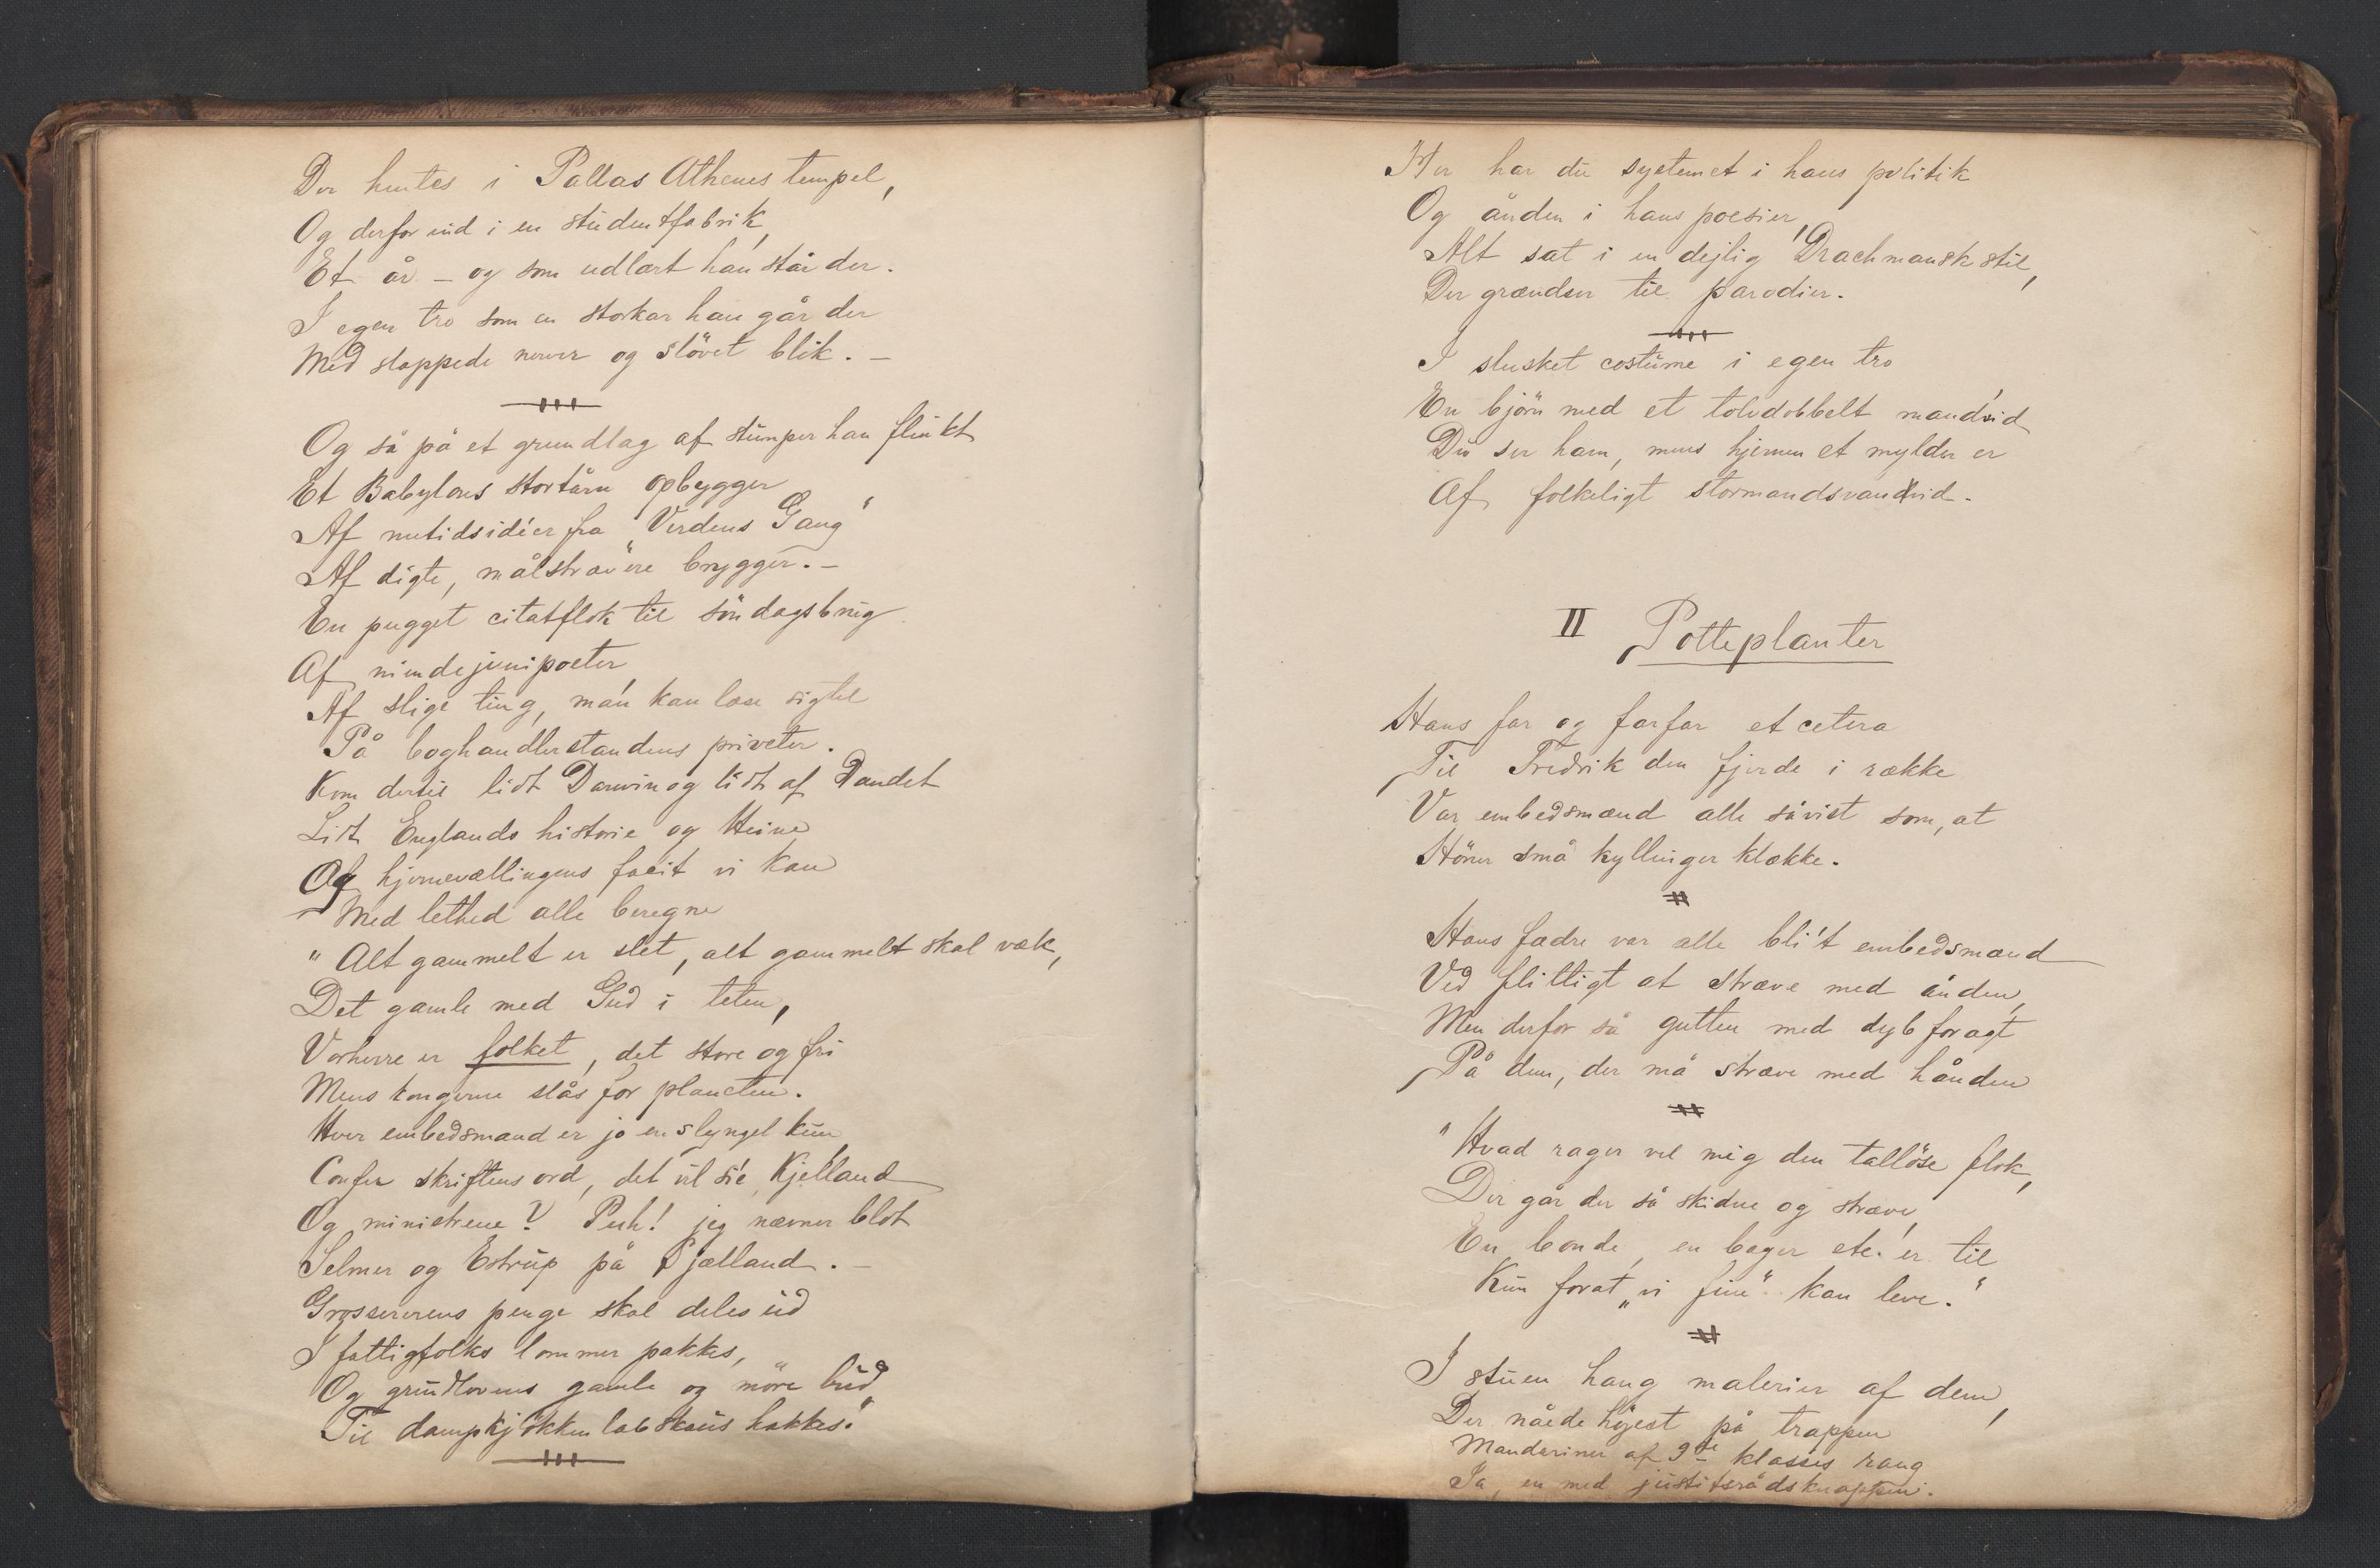 Der hentes i Pallas Athenes tempel,
Og derfor ind i en studentfabrik,
Et år – og som udlært han står der.
I egen tro som en storkar han går der
Med slappede nerver og slövet blik. –
Og så på et grundlag af stumper han flinkt
Et Babylons stortårn opbygger
Af nutidsidéer fra „Verdens Gang“
Af digte, målstrævere brygger. –
En pugget citatflok til söndagsbrug
Af niendejunipoeter,
Af slige ting, man kan læse sigtil
På boghandlerstandens priveter.
Kom dertil lidt Darwin og lidt af Daudet
Lidt Englands historie og Heine
Og hjernevællingens facit vi kan
Med lethed alle beregne
"Alt gammelt er slet, alt gammelt skal væk,
Det gamle med Gud i teten,
Vorherre er folket, det store og fri
Mens kongerne slås for planeten.
Hver embedsmand er jo en slyngel kun
Confer skriftens ord, det vil sie, Kjelland
Og ministrene? Puh! jeg nævner blot
Selmer og Estrup på Sjælland. –
Grossererens penge skal deles ud
I fattigfolks lommer pakkes,
Og grundlovens gamle og möre bud
Til dampkjökken labskaus hakkes."
Her har du systemet i hans politik
Og ånden i hans poesier,
Alt sat i en dejlig Drachmansk stil,
Der grændser til parodier.
I slusket costume i egen tro
En björn med et tolvdobbelt mandvid
Du ser ham, mens hjernen et mylder er
Af folkeligt stormandsvandvid.
II Potteplanter
Hans far og farfar et cetera
Til Fredrik den fjerde i række
Var embedsmænd alle såvist som, at
Höner små kyllinger klække.
Hans fædre var alle bli't embedsmænd
Ved flittigt at stræve med ånden,
Men derfor så gutten med dyb foragt
På dem, der må stræve med hånden
"Hvad rager vel mig den tallöse flok,
Der går der så skidne og stræve,
En bonde, en bager etc. er til
Kun forat „vi fine“ kan leve."
I stuen hang malerier af dem,
Der nåede höjest på trappen
Mandariner af 9de klasses rang
Ja, en med justitsrådsknappen.